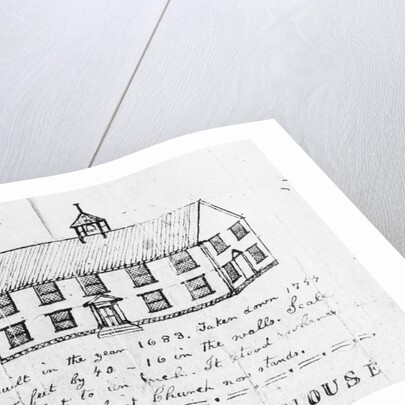 uilt in the year 1683. Taken down 1744
feet by 40 - 16 in the walls. Scale
to an Inch. It stood
Church now stands.
OUSE